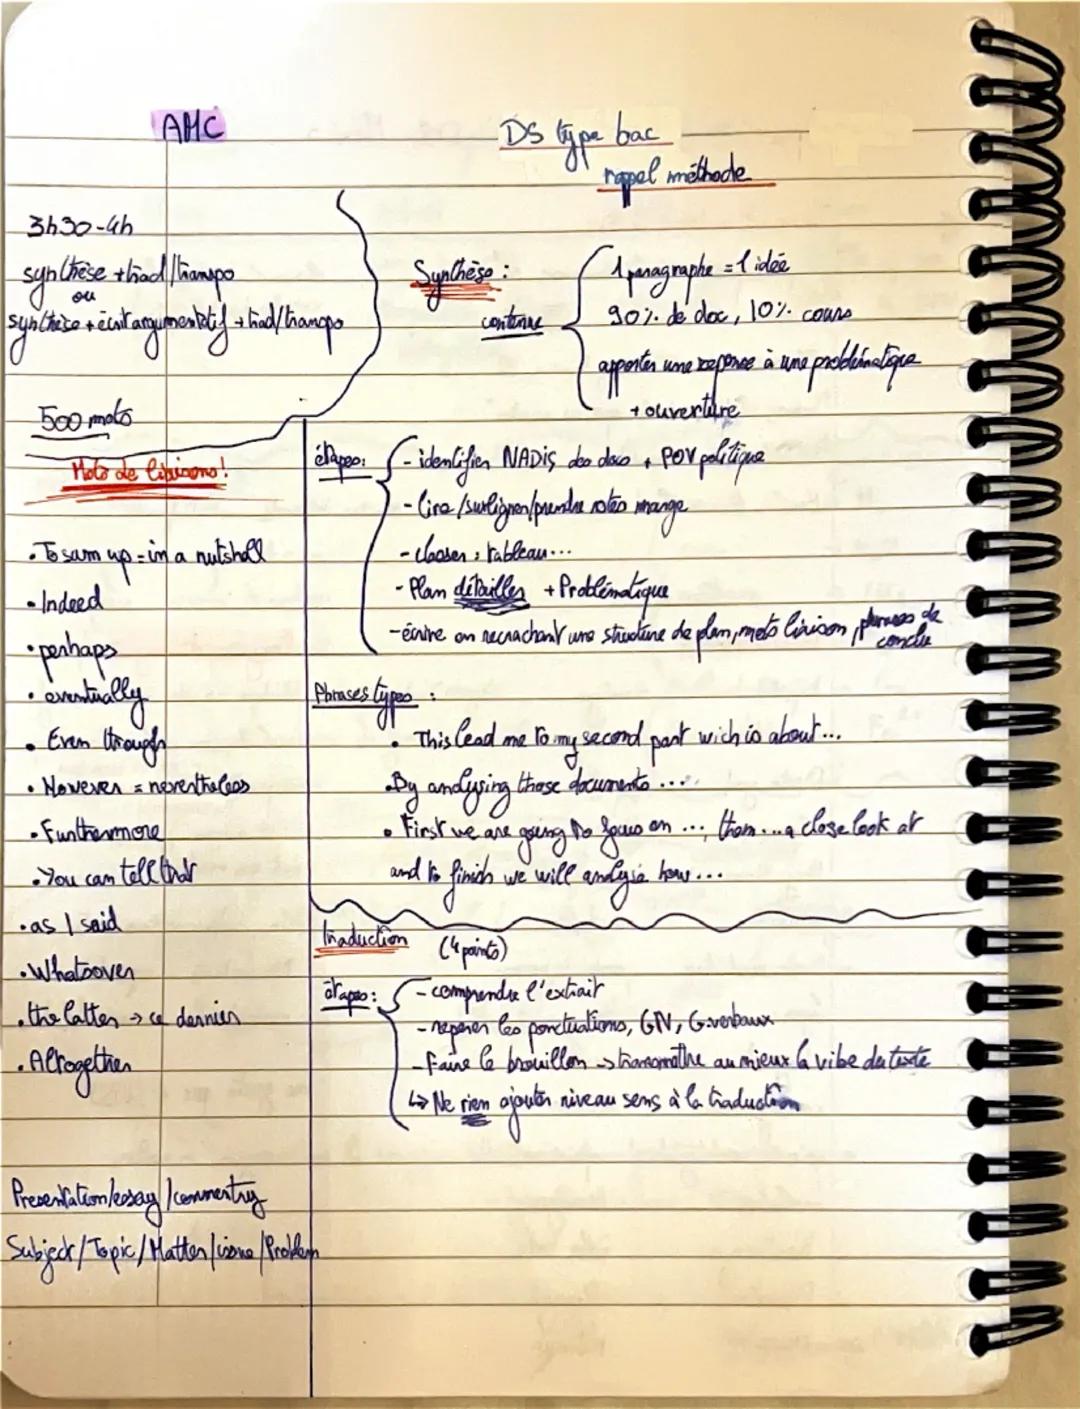 AMC
DS type bac
rappel méthode
3h30-4h
synthèse + trad/transpo
ou
synthèse + écrit argumentatif + trad/transpo
500 mots
Synthèse :
contenue
1 paragraphe = 1 idée
90% de doc, 10% cours
apporter une reponse à une problématique
+ ouverture
Mots de liaisons!
• To sum up = in a nutshell
• Indeed
• perhaps
• eventually
• Even through
• However = nevertheless
• Furthermore
• You can tell that
• as I said
• Whatsover
• the latter → ce dernier
• Altogether
Presentation/essay/commentry
Subject/Topic/Matter/issue/Problem
étapes:
- identifier NADIS des docs + POV politique
- lire/surligner/prendre notes marge
- classer : tableau...
- Plan détailler + Problématique
- écrire en recrachant une structure de plan, mots liaison, phrases de
conclu
Phrases types :
• This lead me to my second part wich is about...
• By analysing those documents ...
• First we are going to focus on ..., then ... a close look at
and to finish we will analysie how...
traduction (4 points)
étapes:
- comprendre l'extrait
- reperer les ponctuations, GN, G.verbaux
- Faire le brouillon → transmettre au mieux la vibe du texte
↳ Ne rien ajouter niveau sens à la traduction